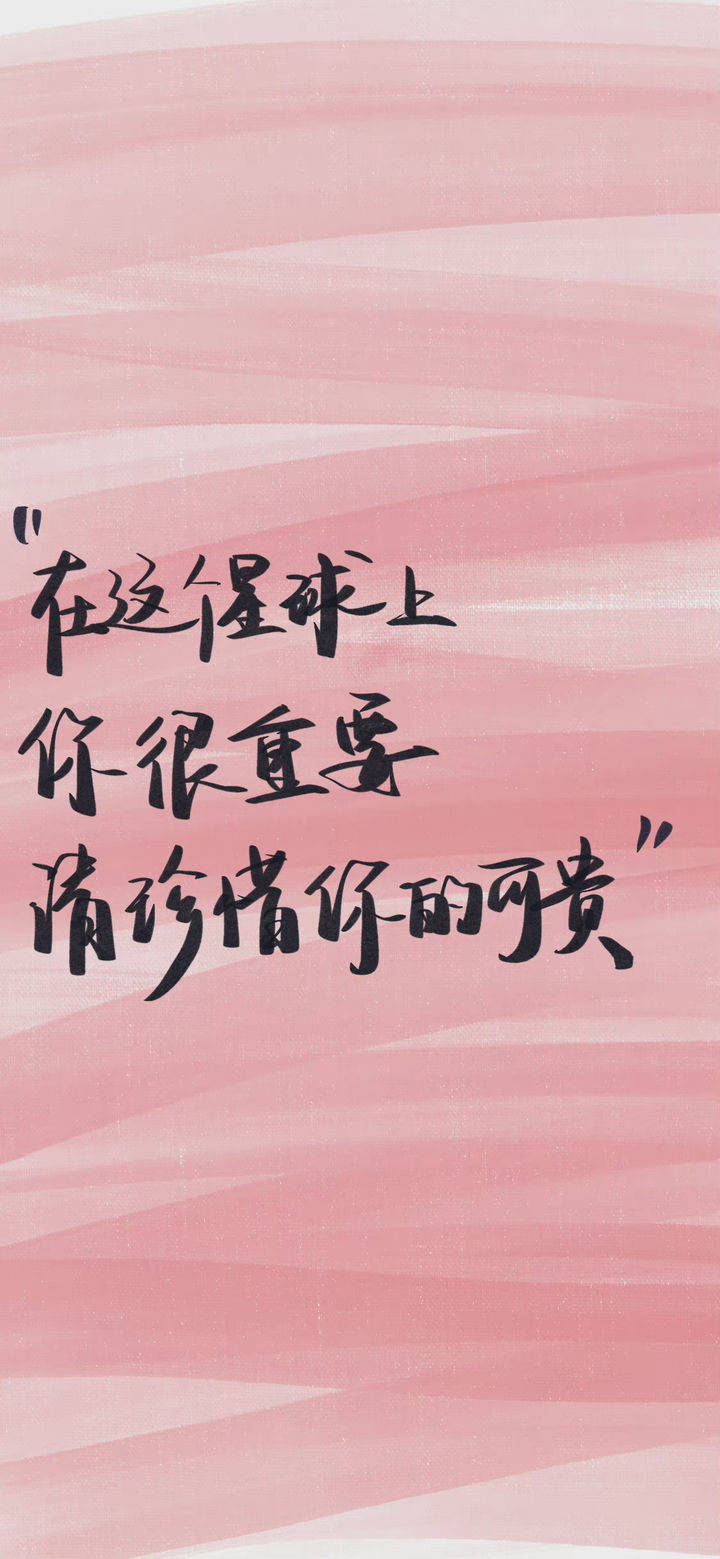 “在这个星球上
你很重要
请珍惜你的可贵”